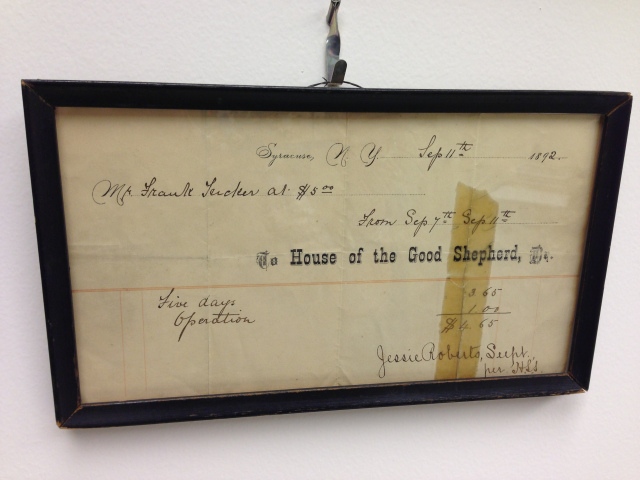 Syracuse, N. Y. Sep 11th 1892.
Mr. Frank Tucker at $5.00
From Sep 7th Sep 11th
To House of the Good Shepherd, Dr.
Five days 3.65
Operation 1.00
$4.65
Jessie Roberts, Supt.,
per. H.S.